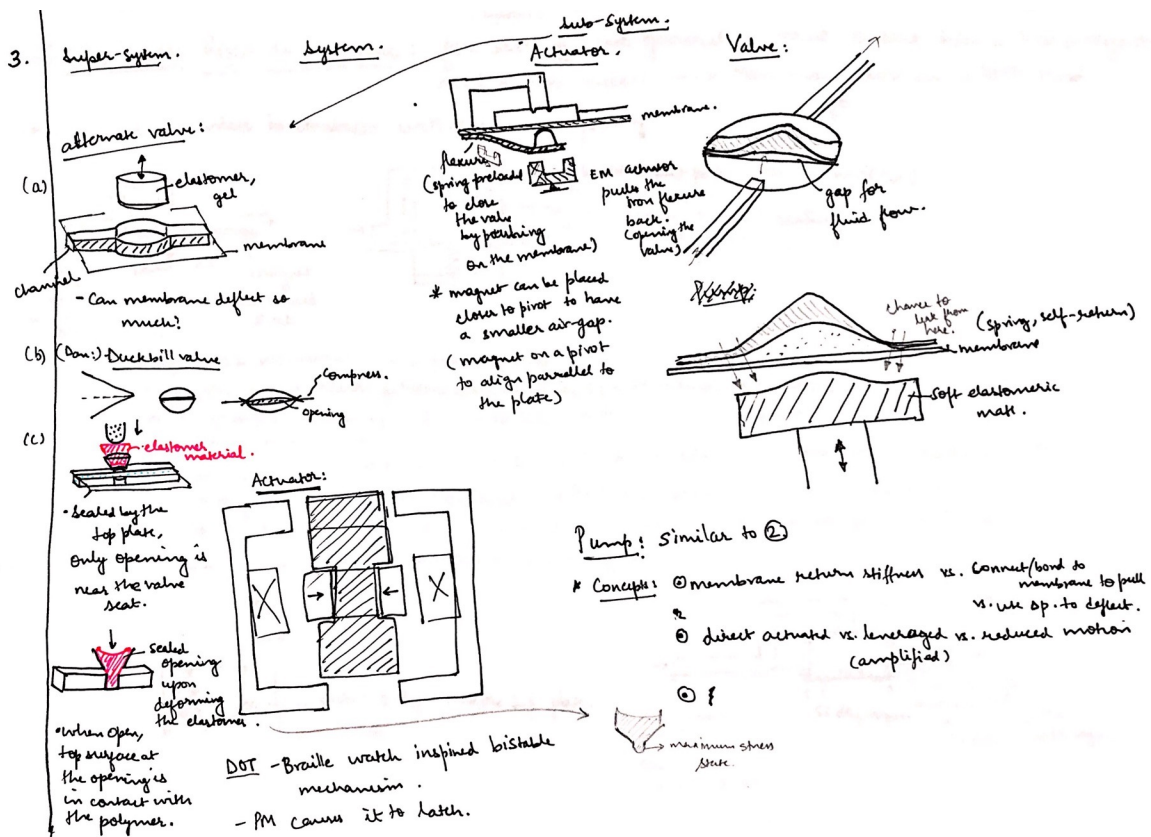 3.
Super-system.
System.
Sub-system.
Actuator.
Valve:
alternate valve:
(a)
elastomer,
gel
membrane
channel
- Can membrane deflect so
much?
(b) (Dan:) Duckbill valve
compress.
opening
(c)
elastomer
material.
• Sealed by the
top plate,
only opening is
near the valve
seat.
sealed
opening
upon
deforming
the elastomer.
• When open,
top surface at
the opening is
in contact with
the polymer.
membrane.
flexure
(spring preload
to close
the valve
by pushing
on the membrane)
EM actuator
pulls the
iron flexure
back.
(opening the
valve)
* magnet can be placed
closer to pivot to have
a smaller air-gap.
(magnet on a pivot
to align parrallel to
the plate)
gap for
fluid flow.
chance to
leak from
here.
(spring, self-return)
membrane
soft elastomeric
matl.
Actuator:
DOT - Braille watch inspired bistable
mechanism.
- PM causes it to latch.
Pump: similar to ②
* Concepts: ⊙ membrane return stiffness vs. connect/bond to
membrane to pull
vs. use sp. to deflect.
⊙ direct actuated vs. leveraged vs. reduced motion
(amplified)
maximum stress
state.